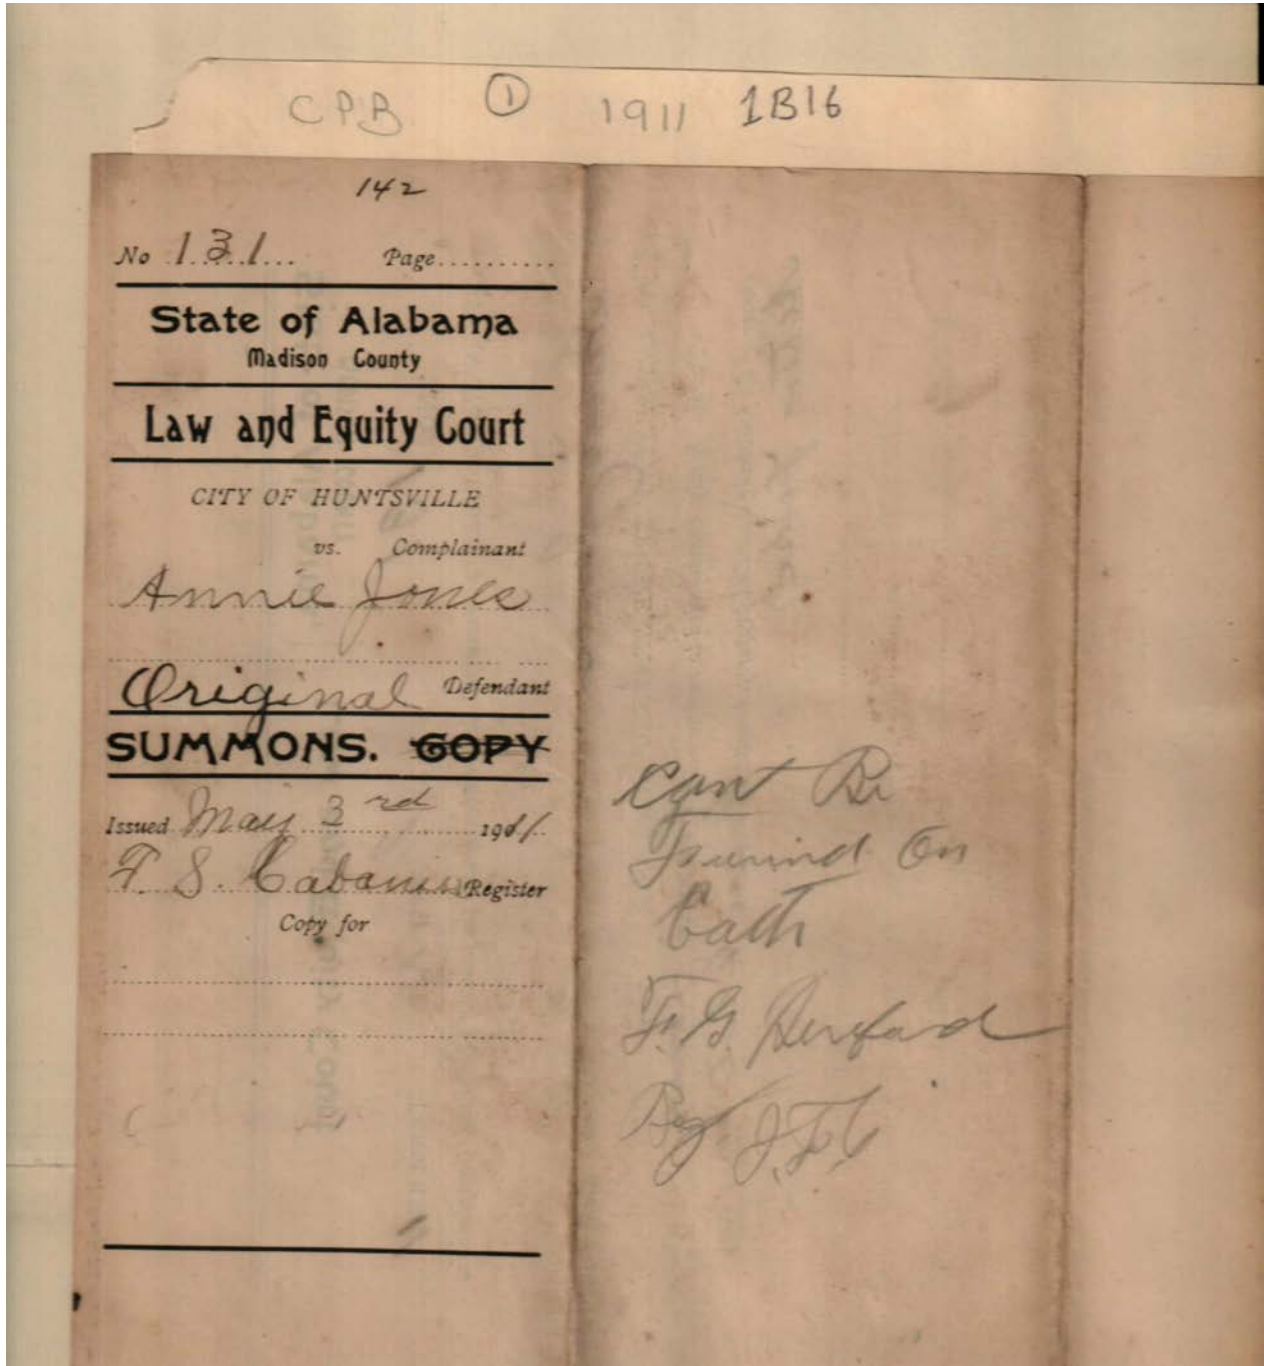 CPB ① 1911 1B16
142
No 131 Page
State of Alabama
Madison County
Law and Equity Court
CITY OF HUNTSVILLE
vs. Complainant
Annie Jones
Original Defendant
SUMMONS. COPY
Issued May 3rd 1911
T. S. Cabaniss Register
Copy for
Cant Be
Found On
Oath
F. G. Hereford
By J.F.C